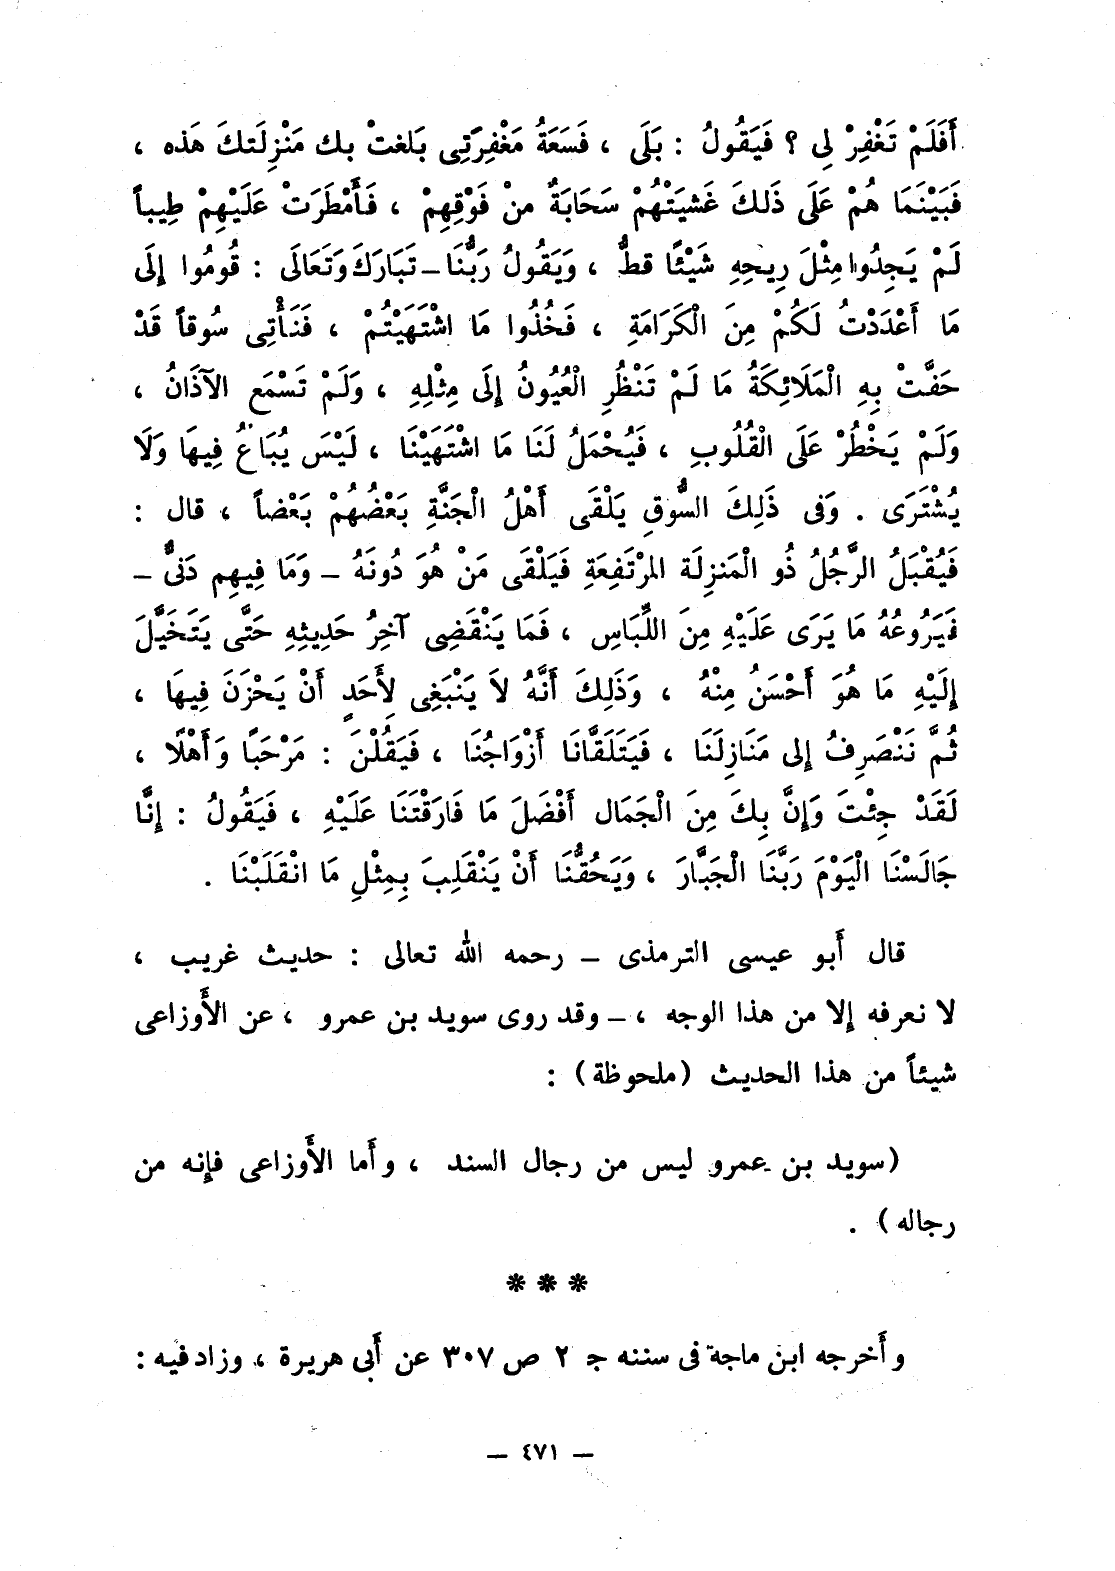 أَفَلَمْ تَغْفِرْ لِي ؟ فَيَقُولُ : بَلَى ، فَسَعَةُ مَغْفِرَتِى بَلَغتْ بِك مَنْزِلَتكَ هَذه ،
فَبَيْنَمَا هُمْ عَلَى ذَلكَ غَشيَتْهُمْ سَحَابَةٌ منْ فَوْقِهِمْ ، فَأَمْطَرَتْ عَلَيْهِمْ طِيباً
لَمْ يَجِدُوا مِثْلَ رِيحِهِ شَيْئًا قطُّ ، وَيَقُولُ رَبُّنَا – تَبَارَكَ وَتَعَالَى : قُومُوا إِلَى
مَا أَعْدَدْتُ لَكُمْ مِنَ الْكَرَامَةِ ، فَخُذُوا مَا اشْتَهَيْتُمْ ، فَنَأْتِى سُوقاً قَدْ
حَفَّتْ بِهِ الْمَلَائِكَةُ مَا لَمْ تَنْظُرِ الْعُيُونُ إِلَى مِثْلِهِ ، وَلَمْ تَسْمَعِ الآذَانُ ،
وَلَمْ يَخْطُرْ عَلَى الْقُلُوبِ ، فَيُحْمَلُ لَنَا مَا اشْتَهَيْنَا ، لَيْسَ يُبَاعُ فِيهَا وَلَا
يُشْتَرَى . وَفى ذَلِكَ السُّوقِ يَلْقَى أَهْلُ الْجَنَّةِ بَعْضُهُمْ بَعْضاً ، قال :
فَيُقْبَلُ الرَّجُلُ ذُو الْمَنزِلَة المرْتَفِعَةِ فَيَلْقَى مَنْ هُوَ دُونَهُ – وَمَا فِيهِم دَنىٌّ –
فَيَرُوعُهُ مَا يَرَى عَلَيْهِ مِنَ اللِّبَاسِ ، فَمَا يَنْقَضِى آخِرُ حَدِيثِهِ حَتَّى يَتَخَيَّلَ
إِلَيْهِ مَا هُوَ أَحْسَنُ مِنْهُ ، وَذَلِكَ أَنَّهُ لاَ يَنْبَغِى لِأَحَدٍ أَنْ يَحْزَنَ فِيهَا ،
ثُمَّ نَنْصَرِفُ إِلى مَنَازِلَنَا ، فَيَتَلَقَّانَا أَزْوَاجُنَا ، فَيَقُلْنَ : مَرْحَبًا وَأَهْلًا ،
لَقَدْ جِئْتَ وَإِنَّ بِكَ مِنَ الْجَمَال أَفْضَلَ مَا فَارَقْتَنَا عَلَيْهِ ، فَيَقُولُ : إِنَّا
جَالَسْنَا الْيَوْمَ رَبَّنَا الْجَبَّارَ ، وَيَحُقُّنَا أَنْ يَنْقَلِبَ بِمِثْلِ مَا انْقَلَبْنَا .
قال أَبو عيسى الترمذى – رحمه الله تعالى : حديث غريب ،
لا نعرفه إِلا من هذا الوجه ، – وقد روى سويد بن عمرو ، عن الأَوزاعى
شيئاً من هذا الحديث (ملحوظة) :
(سويد بن عمرو ليس من رجال السند ، وأَما الأَوزاعى فإِنه من
رجاله) .
***
وأَخرجه ابن ماجة فى سننه جـ ٢ ص ٣٠٧ عن أَبى هريرة ، وزاد فيه :
– ٤٧١ –